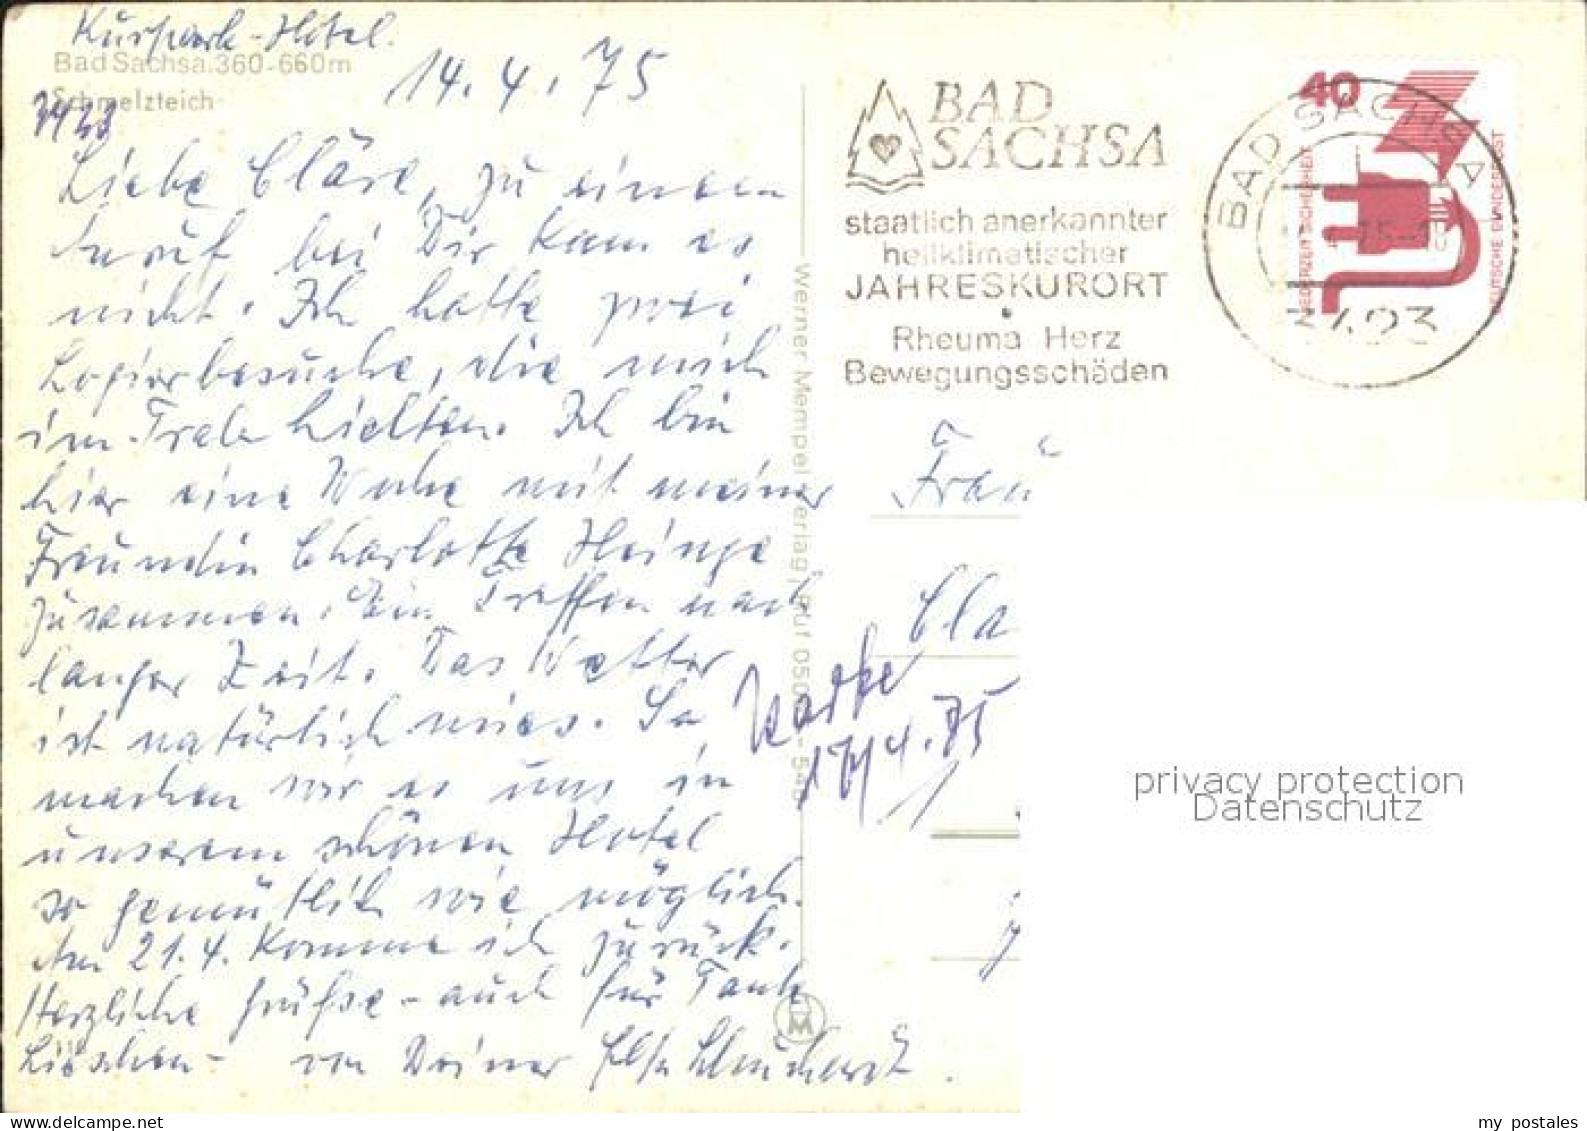 Kurpark-Hotel.
Bad Sachsa. 360-660m
Schmelzteich
14.4.75
Liebe Cläre, zu einem
Anruf bei Dir kam es
nicht. Ich hatte zwei
Logierbesuche, die mich
im Trab hielten. Ich bin
hier eine Woche mit meiner
Freundin Charlotte Heinze
zusammen. Ein Treffen nach
langer Zeit. Das Wetter
ist natürlich mies. So
machen wir es uns in
unserem schönen Hotel
so gemütlich wie möglich.
Am 21.4. komme ich zurück.
Herzliche Grüße - auch für Tante
Lieschen - von Deiner Else
Werner Mempel Verlag, Ruf
M
BAD
SACHSA
staatlich anerkannter
heilklimatischer
JAHRESKURORT
Rheuma Herz
Bewegungsschäden
BAD SACHSA
40
JEDERZEIT SICHERHEIT
DEUTSCHE BUNDESPOST
Frau
Cla
Karte
17/4.75
privacy protection
Datenschutz
my postales